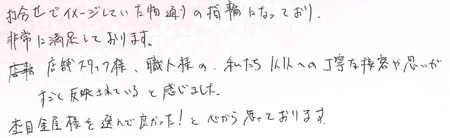 お合せでイメージしていた物通りの指輪になっており、
非常に満足しております。
店舗スタッフ様、職人様の、私たち1人1人への丁寧な接客や思いが
すごく反映されていると感じました。
杢目金屋様を選んで良かった!と心から思っております。